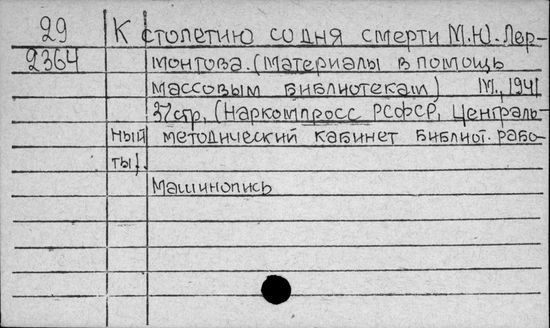 29 К столетию со дня смерти М.Ю. Лер-
2364 монтова. (Материалы в помощь
массовым библиотекам) М., 1941
37 стр. (Наркомпросс РСФСР, Централь-
ный методический кабинет библиот. рабо-
ты).
Машинопись